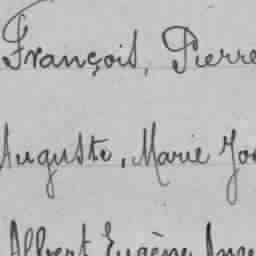 François, Pierre
Auguste, Marie
Albert Eugène